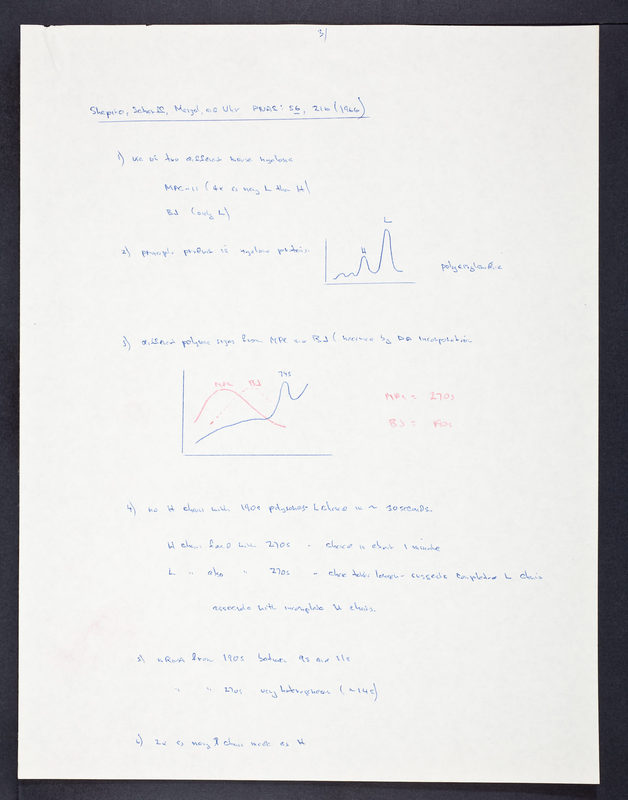 3/
Shapiro, Scharff, Maizel, and Uhr PNAS: 56, 216 (1966)
1) use of two different mouse myeloma
MPC-11 (4x as many L than H)
BJ (only L)
2) principle product is myeloma protein.
H
L
polyacrylamide
3) different polysome sizes from MPC and BJ (measured by AA incorporation
MPC
BJ
74S
MPC = 270s
BJ =
4) no H chains with 190s polysomes L chased in ~ 30 seconds.
H chains found with 270s - chased in about 1 minute
L " also " 270s - chase takes longer - suggests completed L chain
associate with incomplete H chains.
5) mRNA from 190s between 9s and 11s
" " 270s very heterogeneous (~14s)
6) 2x as many L chains made as H